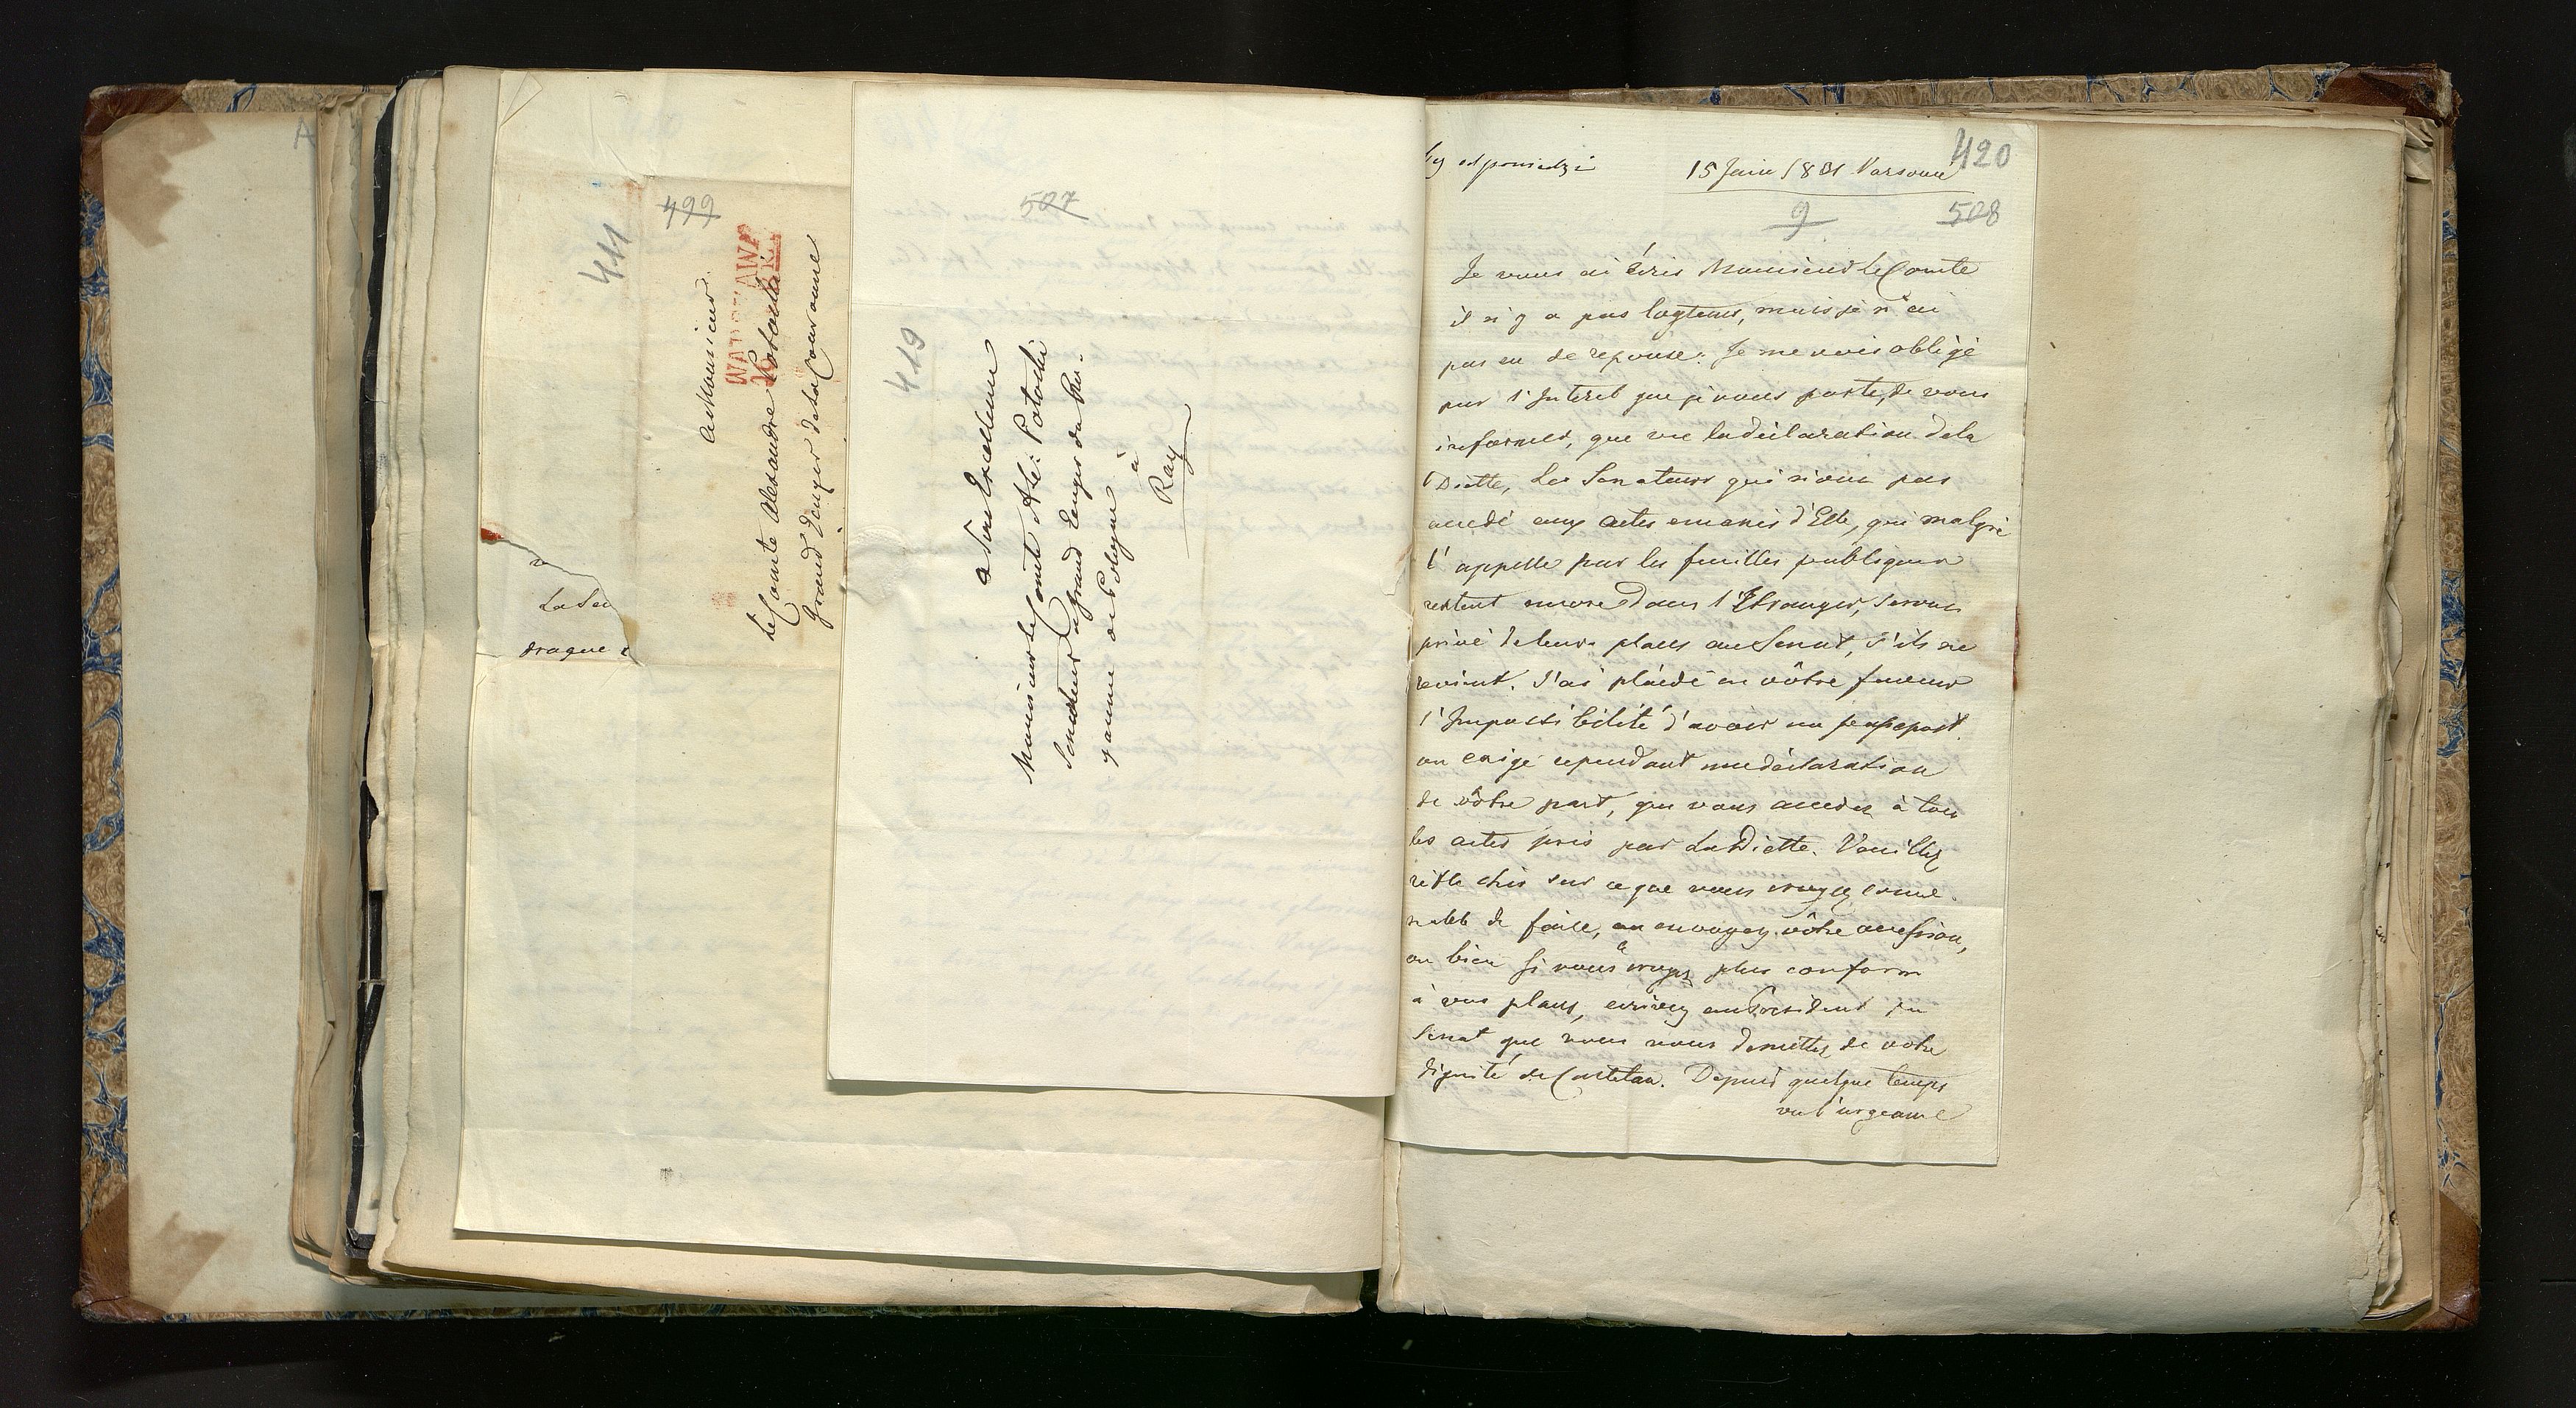 411
499
A Monsieur
Le Comte Alexandre Potocki
Grand Ecuyer de la Couronne
La Sa
drogue
419
507
a Son Excellence
Monsieur le Comte Ale: Potocki
Senateur grand Ecuyer du Ro-
yaume de Pologne
à
Ray
420
odpowiedzi
15 Juin 1831 Varsovie
9
508
Je vous ai écris Monsieur Le Comte
il n'y a pas logtems, mais je n'ai
pas eu de reponse. Je me vois obligé
par l'Interet que je vous porte, de vous
informer, que vu la déclaration de la
Diette, Les Senateurs qui n'ont pas
accedé aux actes emanés d'Elle, qui malgré
l'appelle par les feuilles publiques
restent encore dans l'Etranger, seront
privé de leurs places au Senat, s'ils ne
revient. J'ai plaidé en vôtre faveur
l'Impossibilité d'avoir un passeport.
on exige cependant une déclaration
de vôtre part, que vous accedez à tous
les actes pris par La Diette. Veuillez
réfléchir sur ce que vous croyez conve-
nable de faire, en envoyez vôtre accession,
ou bien si vous croyez plus conform
à vos plans, ecrivez au President du
Senat que vous vous demettez de votre
dignité de Castelan. Depuis quelque temps
vu l'urgeance